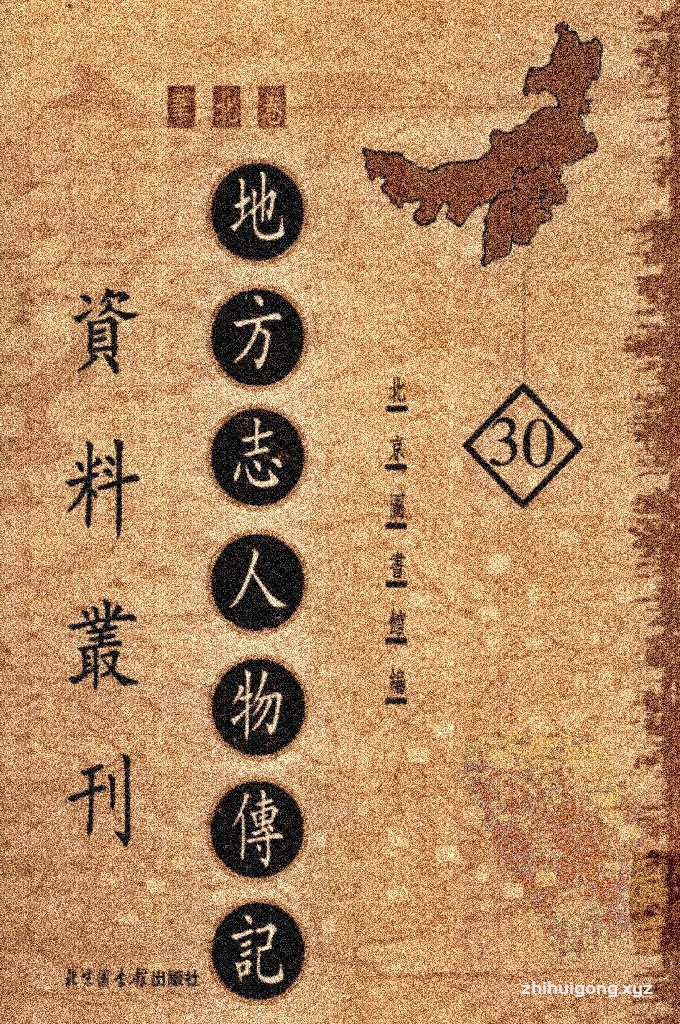 華北卷
地方志人物傳記
資料叢刊
北京圖書館編
30
北京圖書館出版社
zhihuigong.xyz